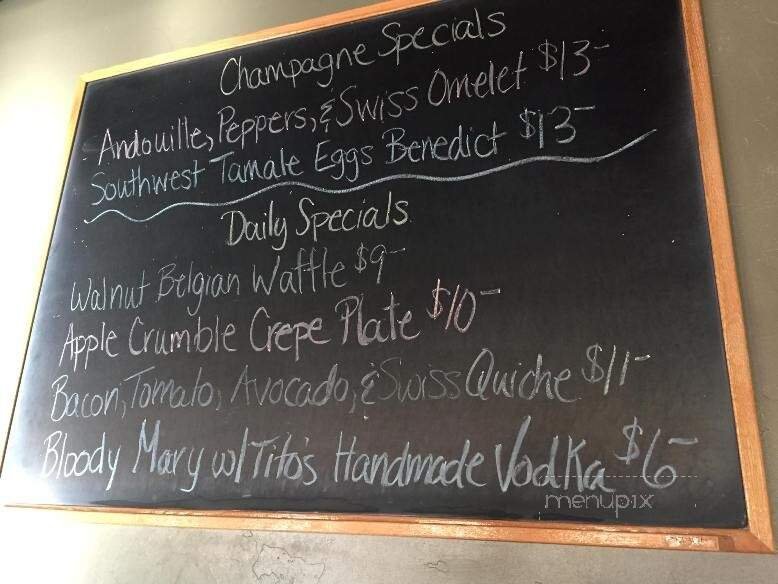 Champagne Specials
Andouille, Peppers, & Swiss Omelet $13-
Southwest Tamale Eggs Benedict $13-
Daily Specials
Walnut Belgian Waffle $9-
Apple Crumble Crepe Plate $10-
Bacon, Tomato, Avocado, & Swiss Quiche $11-
Bloody Mary w/ Tito's Handmade Vodka $6-
menupix